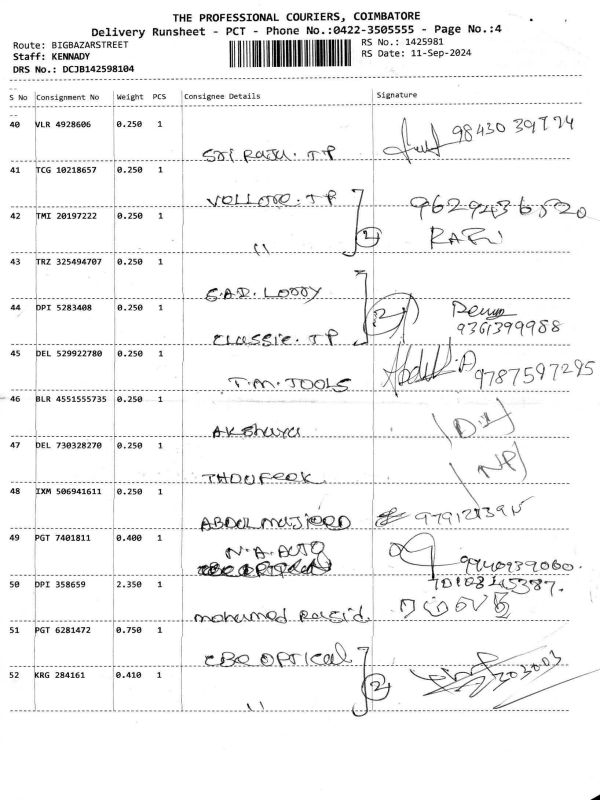 THE PROFESSIONAL COURIERS, COIMBATORE
Delivery Runsheet - PCT - Phone No.:0422-3505555 - Page No.:4
Route: BIGBAZARSTREET RS No.: 1425981
Staff: KENNADY RS Date: 11-Sep-2024
DRS No.: DCJB142598104
S No Consignment No Weight PCS Consignee Details Signature
40 VLR 4928606 0.250 1
Sri Raju. TP
41 TCG 10218657 0.250 1
VELLORE. TP
42 TMI 20197222 0.250 1
" 2
RAFI
43 TRZ 325494707 0.250 1
S.A.D. LOOTY
44 DPI 5283408 0.250 1 2
9361399988
CLASSIC. TP
45 DEL 529922780 0.250 1
9787597295
T.M. TOOLS
46 BLR 4551555735 0.250 1
AKshaya
47 DEL 730328270 0.250 1
NP
THOUFEEK
48 IXM 506941611 0.250 1
ABDUL MAJEED
49 PGT 7401811 0.400 1
N.A. AUTO
50 DPI 358659 2.350 1
mohamed Rasid
51 PGT 6281472 0.750 1
CBE OPTICAL
52 KRG 284161 0.410 1
" 2